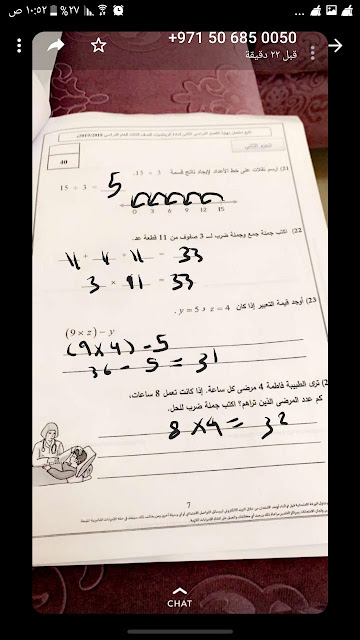 ١٠:٥٢ ص
٢٧%
+971 50 685 0050
قبل ٢٢ دقيقة
الجزء الثاني
40
21) ارسم نقلات على خط الأعداد لإيجاد ناتج قسمة 3 ÷ 15.
15 ÷ 3 = 5
0 3 6 9 12 15
22) اكتب جملة جمع وجملة ضرب لـ 3 صفوف من 11 قطعة عد.
11 + 11 + 11 = 33
3 × 11 = 33
23) أوجد قيمة التعبير إذا كان z = 4 و y = 5.
(9 × z) – y
(9×4) - 5
36 - 5 = 31
ترى الطبيبة فاطمة 4 مرضى كل ساعة. إذا كانت تعمل 8 ساعات،
كم عدد المرضى الذين تراهم؟ اكتب جملة ضرب للحل.
8 × 4 = 32
7
CHAT